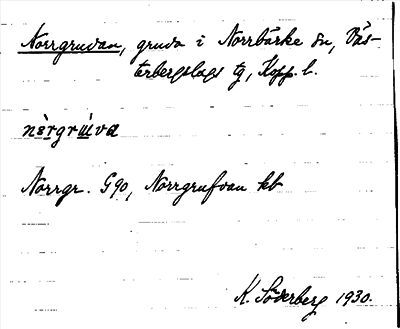 Norrgruvan, gruva i Norrbärke sn, Väs-
terbergslags tg, Kopp. l.
nȯrgrúvα
Norrgr. G90, Norrgrufvan kb
K. Söderberg 1930.